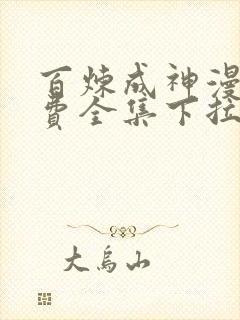 百炼成神漫
费全集下拉
大乌山